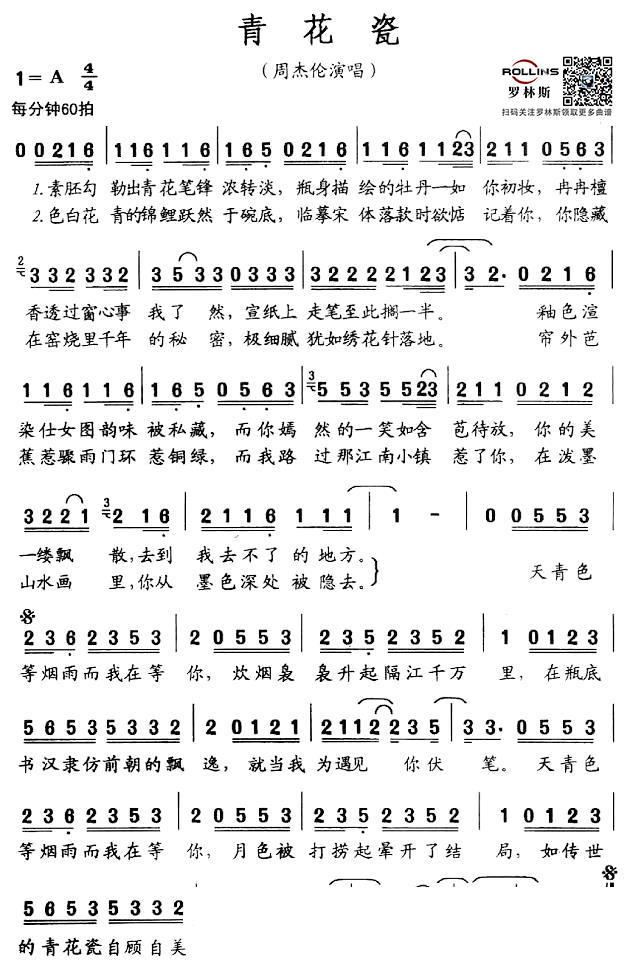 青花瓷
（周杰伦演唱）
1=A 4/4
每分钟60拍
ROLLINS
罗林斯
扫码关注罗林斯领取更多曲谱
0 0216 116116 50216 1161123 211 0563
1.素胚勾 勒出青花笔锋 浓转淡，瓶身描 绘的牡丹一如 你初妆，冉冉檀
2.色白花 青的锦鲤跃然 于碗底，临摹宋 体落款时欲惦 记着你，你隐藏
2 332 332 3 533 0333 3222 2123 3 2· 0216
香透过窗心事 我了 然，宣纸上 走笔至此搁一半。 釉色渲
在窑烧里千年 的秘 密，极细腻 犹如绣花针落地。 帘外芭
116 116 1 165 0563 3 553 5523 211 0212
染仕女图韵味 被私藏，而你嫣 然的一笑如含 苞待放，你的美
蕉惹骤雨门环 惹铜绿，而我路 过那江南小镇 惹了你，在泼墨
3221 3 2 16 2116 111 1 - 0 0553
一缕飘 散，去到 我去不了 的地方。
山水画 里，你从 墨色深处 被隐去。
天青色
236 2353 2 0553 235 2353 1 0123
等烟雨而我在等 你，炊烟袅 袅升起隔江千万 里，在瓶底
5653 5332 2 0121 2112 235 3 3· 0553
书汉隶仿前朝的飘 逸，就当我 为遇见 你伏 笔。天青色
236 2353 2 0553 235 2353 1 0123
等烟雨而我在等 你，月色被 打捞起晕开了结 局，如传世
5653 5332
的青花瓷自顾自美